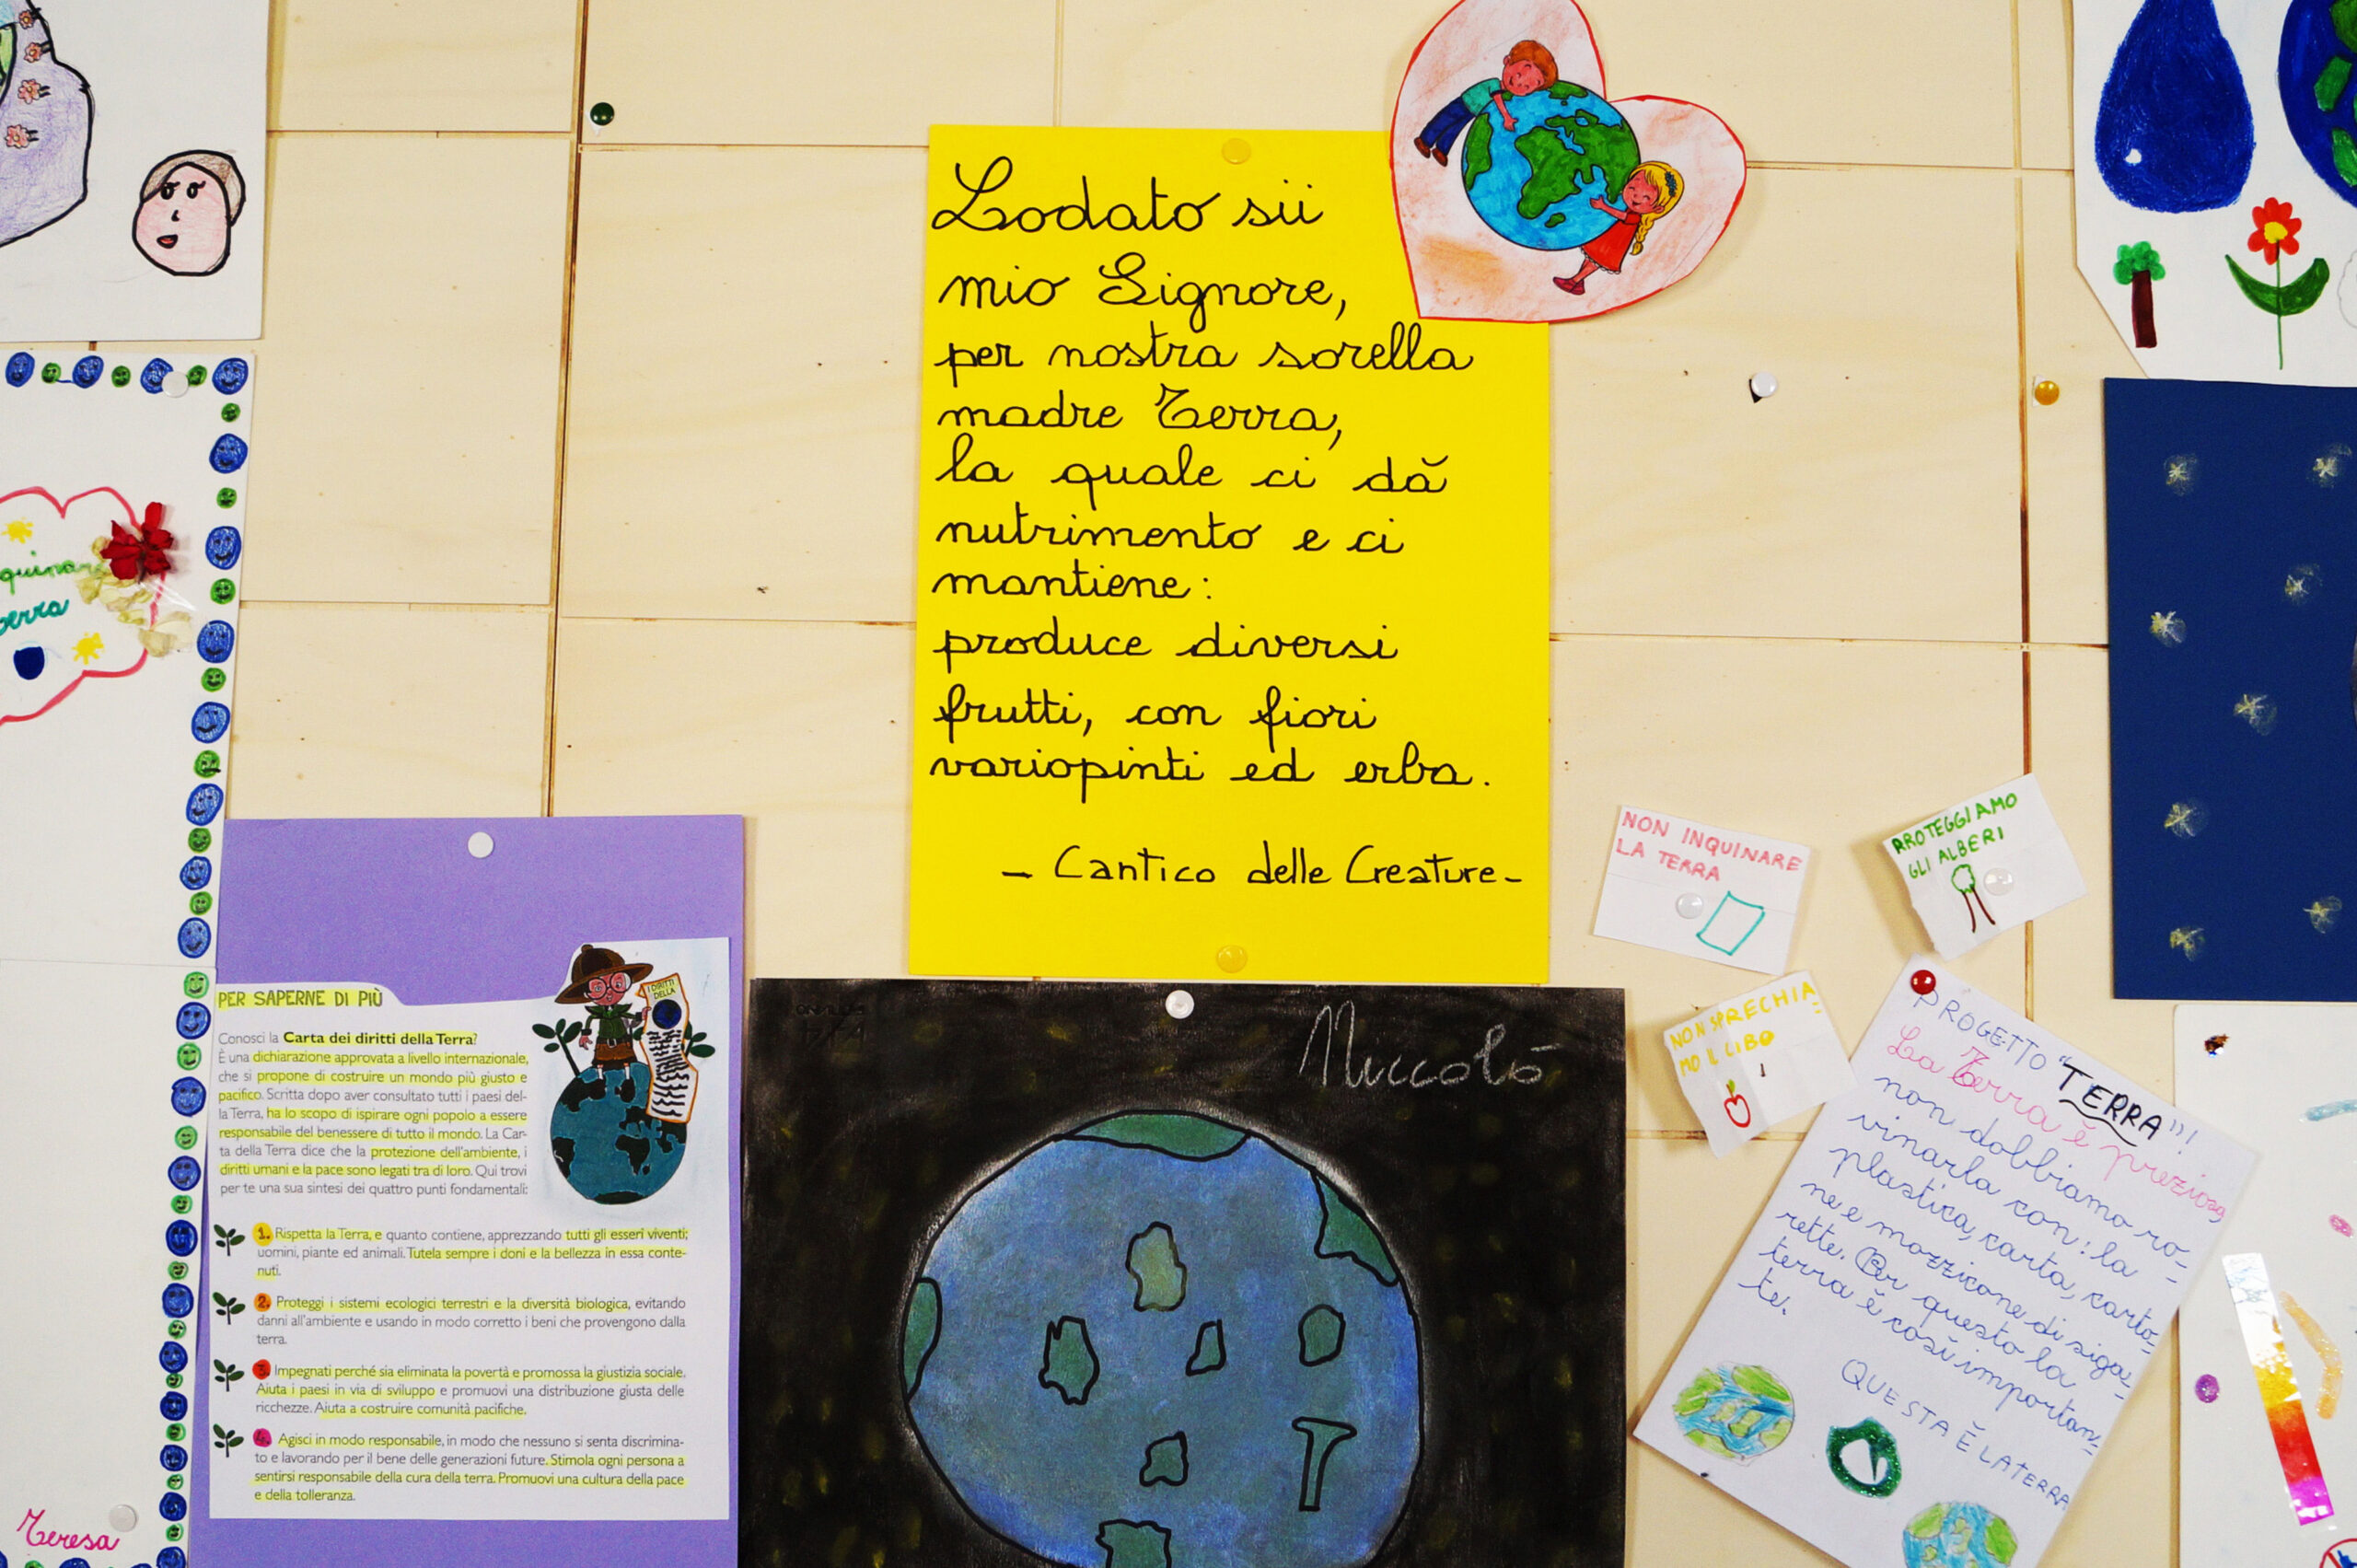 Lodato sii
mio Signore,
per nostra sorella
madre Terra,
la quale ci dă
nutrimento e ci
mantiene:
produce diversi
frutti, con fiori
variopinti ed erba.
- Cantico delle Creature-
quinare
Terra
Teresa
PER SAPERNE DI PIÙ
I DIRITTI
DELLA
Conosci la Carta dei diritti della Terra?
È una dichiarazione approvata a livello internazionale,
che si propone di costruire un mondo più giusto e
pacifico. Scritta dopo aver consultato tutti i paesi del-
la Terra, ha lo scopo di ispirare ogni popolo a essere
responsabile del benessere di tutto il mondo. La Car-
ta della Terra dice che la protezione dell'ambiente, i
diritti umani e la pace sono legati tra di loro. Qui trovi
per te una sua sintesi dei quattro punti fondamentali:
1. Rispetta la Terra, e quanto contiene, apprezzando tutti gli esseri viventi;
uomini, piante ed animali. Tutela sempre i doni e la bellezza in essa conte-
nuti.
2. Proteggi i sistemi ecologici terrestri e la diversità biologica, evitando
danni all'ambiente e usando in modo corretto i beni che provengono dalla
terra.
3. Impegnati perché sia eliminata la povertà e promossa la giustizia sociale.
Aiuta i paesi in via di sviluppo e promuovi una distribuzione giusta delle
ricchezze. Aiuta a costruire comunità pacifiche.
4. Agisci in modo responsabile, in modo che nessuno si senta discrimina-
to e lavorando per il bene delle generazioni future. Stimola ogni persona a
sentirsi responsabile della cura della terra. Promuovi una cultura della pace
e della tolleranza.
Niccolò
T
NON INQUINARE
LA TERRA
PROTEGGIAMO
GLI ALBERI
NON SPRECHIA
MO IL CIBO
PROGETTO "TERRA"!!!
La Terra ĕ preziosa
non dobbiamo ro-
vinarla con: la
plastica, carta, carto-
ne e mozzicone di siga-
rette. Per questo la
terra ĕ cosĭ importan-
te.
QUESTA È LA TERRA